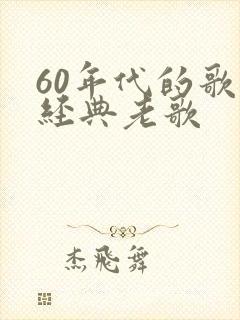 60年代的歌
經典老歌
杰飛舞